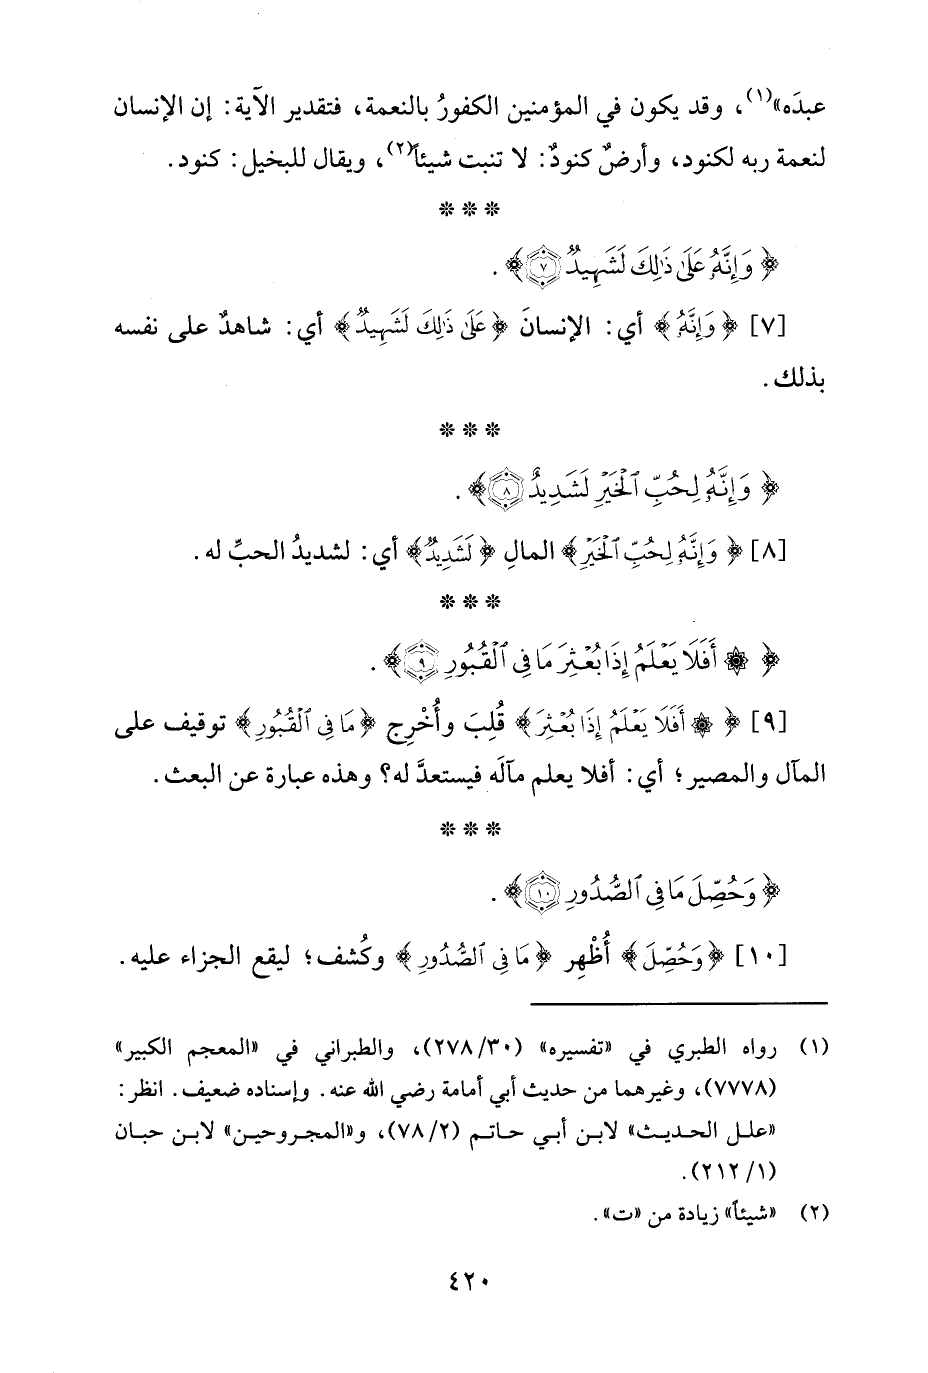 عبدَه»(١)، وقد يكون في المؤمنين الكفورُ بالنعمة، فتقدير الآية: إن الإنسان
لنعمة ربه لكنود، وأرضٌ كنودٌ: لا تنبت شيئاً(٢)، ويقال للبخيل: كنود.
* * *
﴿ وَإِنَّهُۥ عَلَىٰ ذَٰلِكَ لَشَهِيدٌ ٧ ﴾.
[٧] ﴿ وَإِنَّهُۥ ﴾ أي: الإنسانَ ﴿ عَلَىٰ ذَٰلِكَ لَشَهِيدٌ ﴾ أي: شاهدٌ على نفسه
بذلك.
* * *
﴿ وَإِنَّهُۥ لِحُبِّ ٱلْخَيْرِ لَشَدِيدٌ ٨ ﴾.
[٨] ﴿ وَإِنَّهُۥ لِحُبِّ ٱلْخَيْرِ ﴾ المالِ ﴿ لَشَدِيدٌ ﴾ أي: لشديدُ الحبِّ له.
* * *
﴿ ۞ أَفَلَا يَعْلَمُ إِذَا بُعْثِرَ مَا فِى ٱلْقُبُورِ ٩ ﴾.
[٩] ﴿ ۞ أَفَلَا يَعْلَمُ إِذَا بُعْثِرَ ﴾ قُلِبَ وأُخْرِج ﴿ مَا فِى ٱلْقُبُورِ ﴾ توقيف على
المآل والمصير؛ أي: أفلا يعلم مآلَه فيستعدَّ له؟ وهذه عبارة عن البعث.
* * *
﴿ وَحُصِّلَ مَا فِى ٱلصُّدُورِ ١٠ ﴾.
[١٠] ﴿ وَحُصِّلَ ﴾ أُظْهِر ﴿ مَا فِى ٱلصُّدُورِ ﴾ وكُشف؛ ليقع الجزاء عليه.
(١) رواه الطبري في «تفسيره» (٣٠/ ٢٧٨)، والطبراني في «المعجم الكبير»
(٧٧٧٨)، وغيرهما من حديث أبي أمامة رضي الله عنه. وإسناده ضعيف. انظر:
«علل الحديث» لابن أبي حاتم (٢/ ٧٨)، و«المجروحين» لابن حبان
(١/ ٢١٢).
(٢) «شيئاً» زيادة من «ت».
٤٢٠